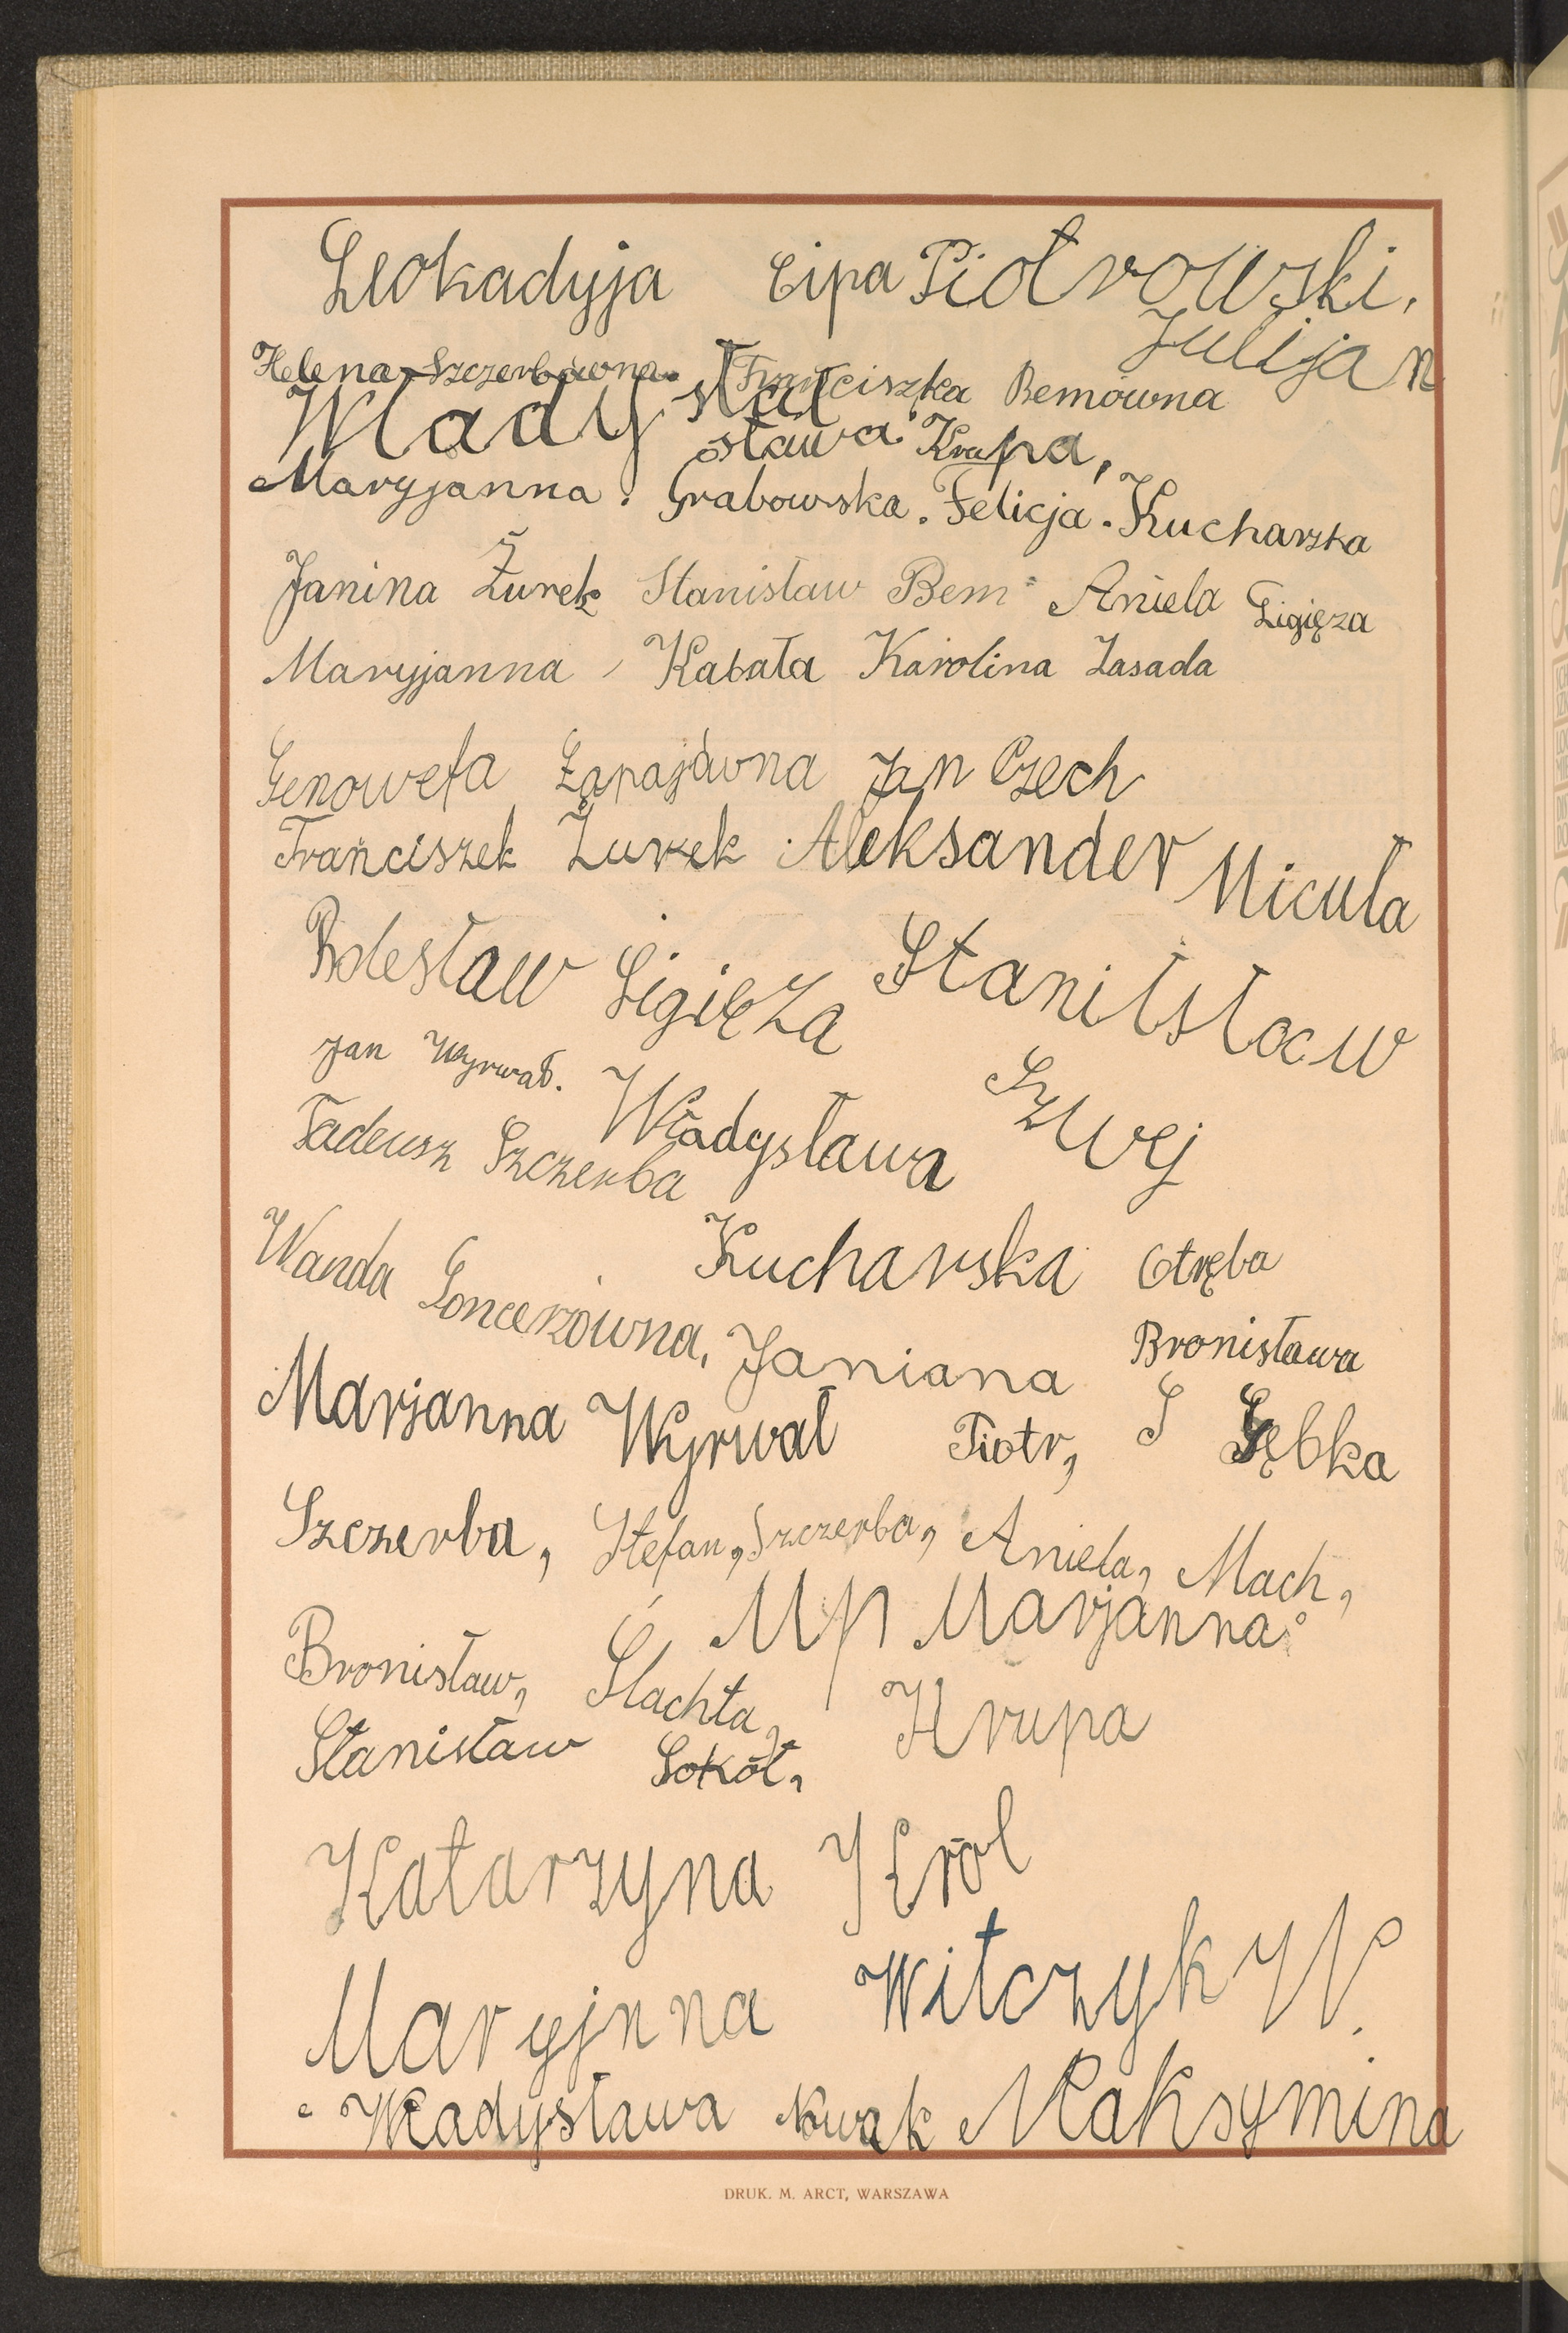 Leokadyja Cipa Piotrowski.
Julijan
Helena Szczerbówna. Franciszka Bemówna
Władysła
sława Krupa,
Maryjanna. Grabowska. Felicja. Kucharska
Janina Żurek Stanisław Bem Aniela Ligięza
Maryjanna Kabała Karolina Zasada
Genowefa Łapajówna Jan Czech
Franciszek Żurek Aleksander Micuła
Bolesław Ligięza Stanilsław
Jan Wyrwał. Szwej
Tadeusz Szczerba Władysława
Kucharska Otręba
Wanda Loncerzówna, Janiana Bronisława
Marjanna Wyrwał Piotr, S Gębka
Szczerba, Stefan, Szczerba, Aniela, Mach,
M Marjanna
Bronisław, Ślachta, Krupa
Stanisław Sokół,
Katarzyna Król
Maryjnna Witczyk W.
Władysława Nowak Maksymina
DRUK. M. ARCT, WARSZAWA